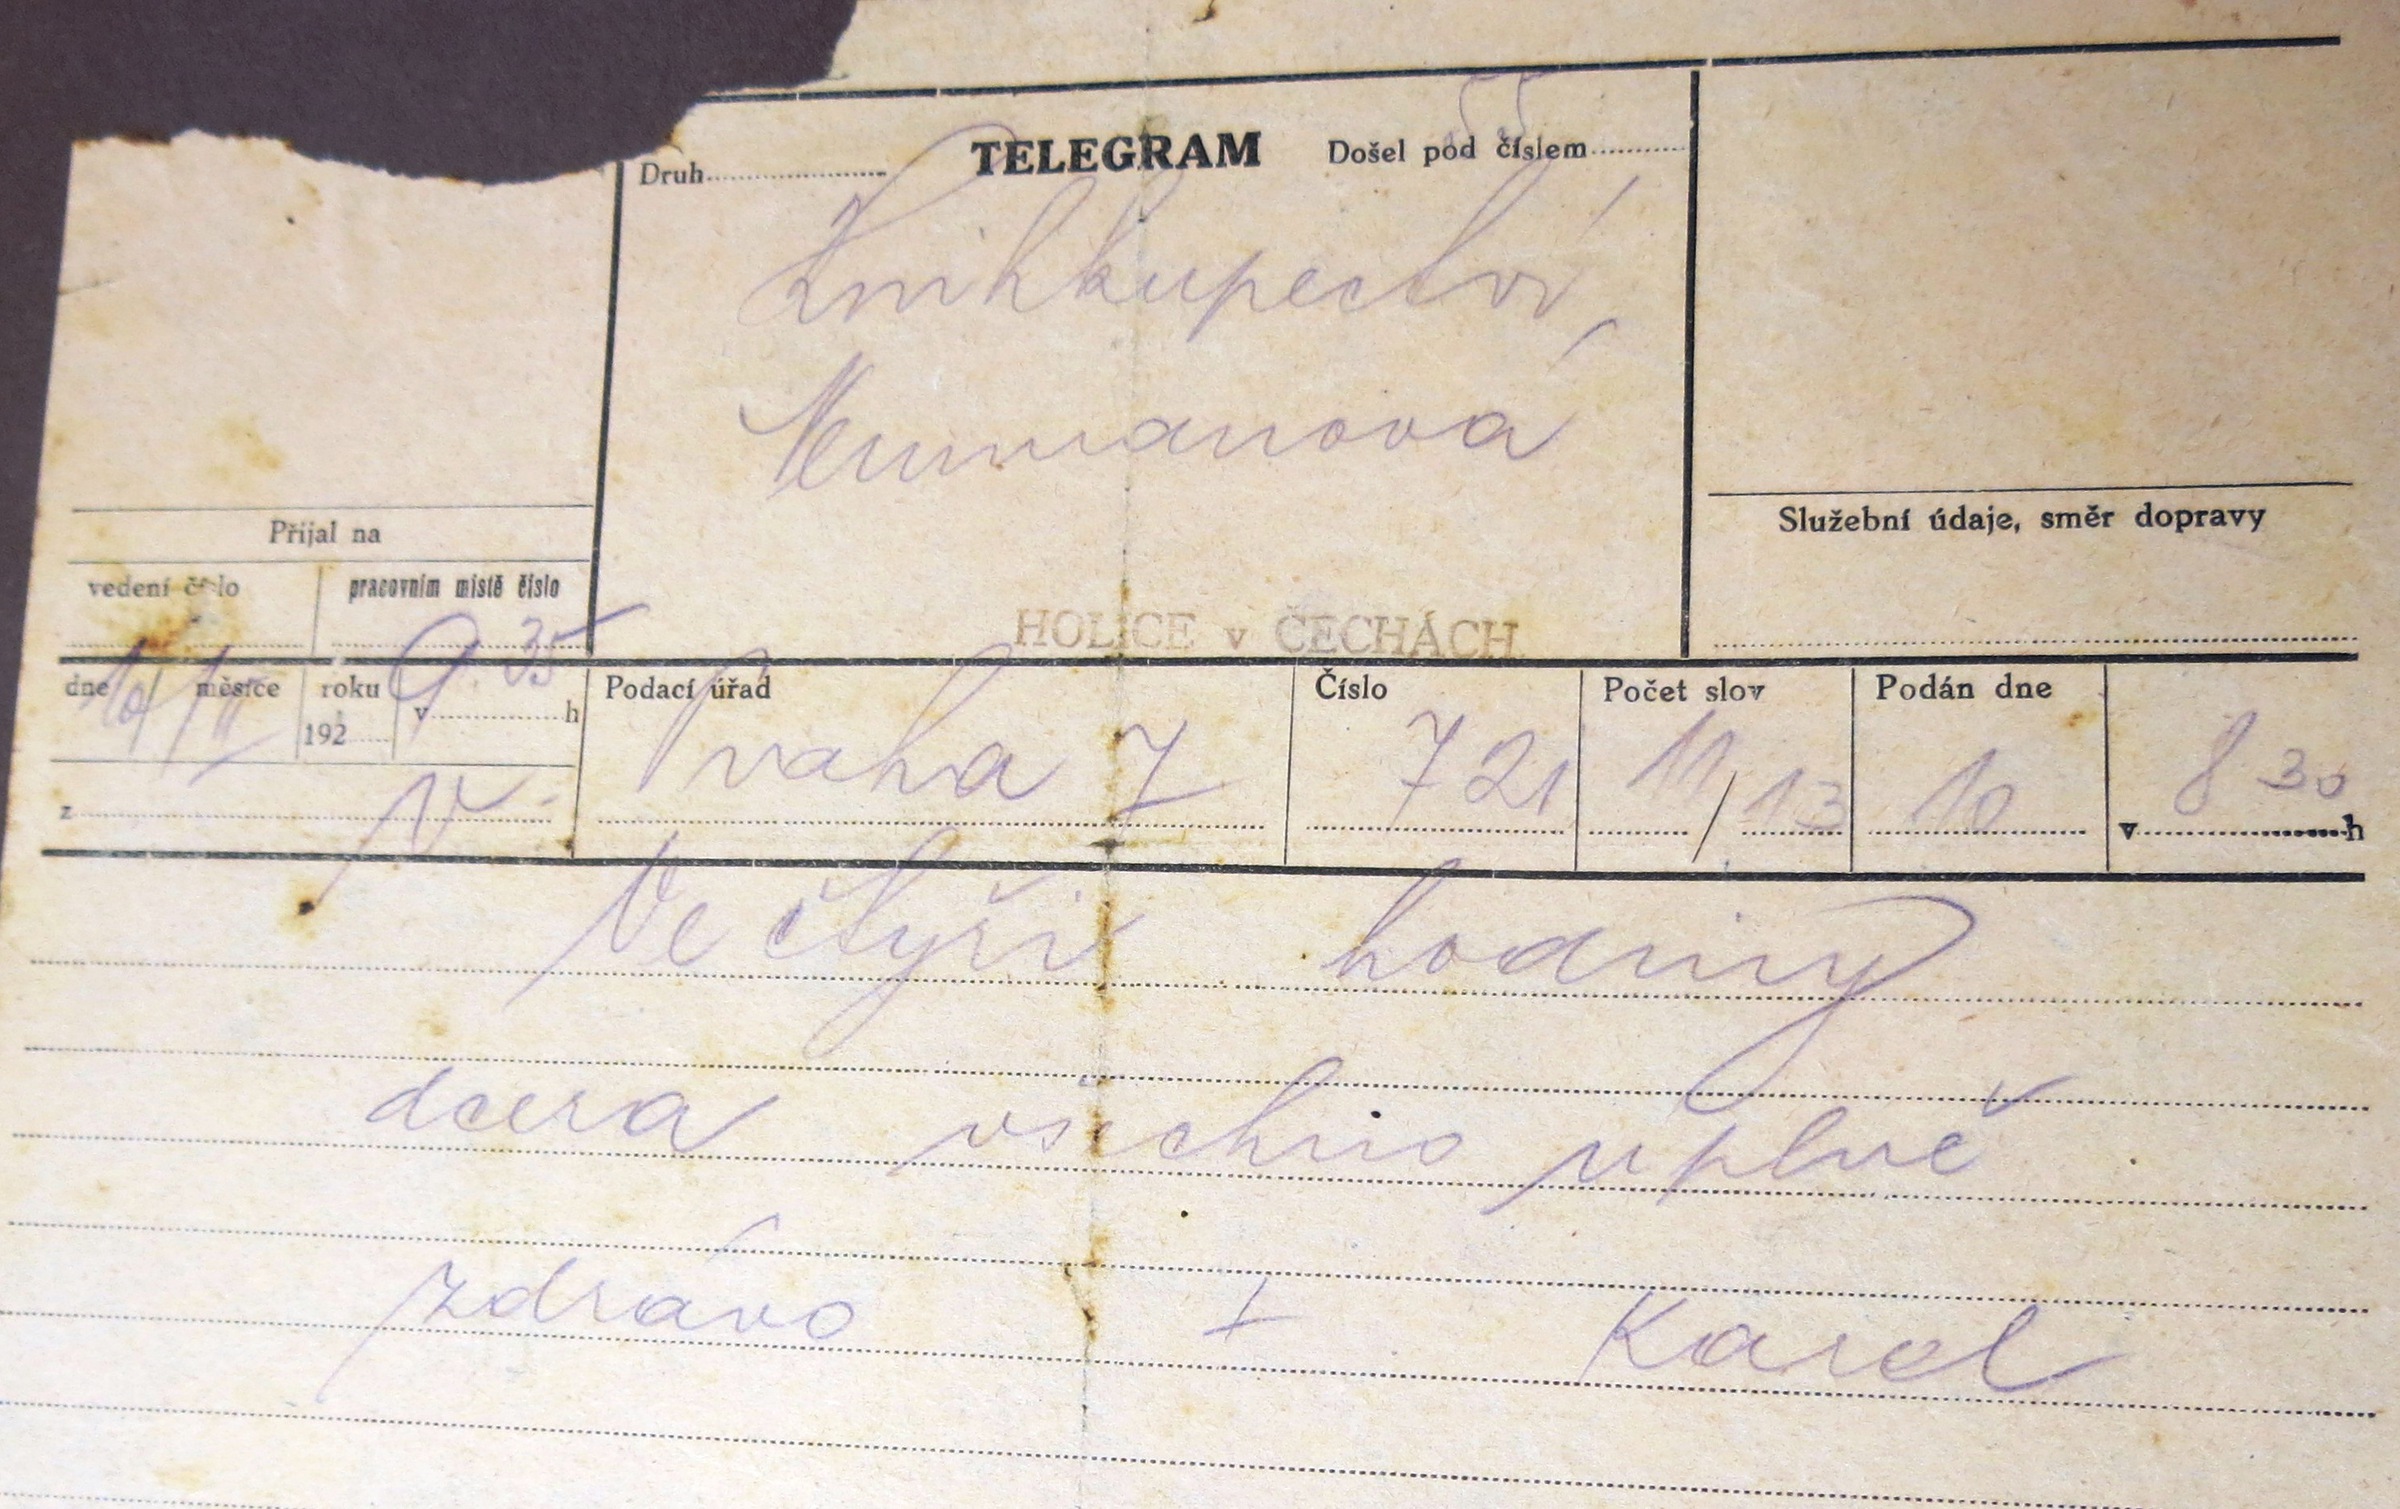 55
Druh TELEGRAM Došel pod číslem
Knihkupectví
Neumanová
Přijal na
vedení číslo pracovním místě číslo
Služební údaje, směr dopravy
HOLICE v ČECHÁCH
9 35
dne měsíce roku v h Podací úřad Číslo Počet slov Podán dne
10/ 192 Praha 7 721 11/13 10 8 30
z v h
Ve čtyři hodiny
dcera všechno uplně
zdrávo + Karel